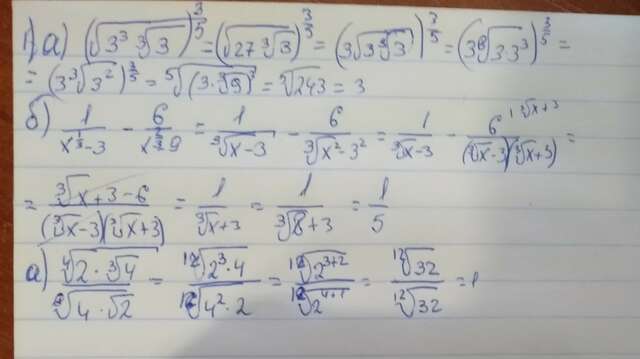 1) а) (√(3³ ∛3))^(3/5) = (√(27 ∛3))^(3/5) = (3√(3 ∛3))^(3/5) = (3 ⁶√(3·3³))^(3/5) =
= (3 ³√(3²))^(3/5) = ⁵√((3·∛9)³) = ⁵√243 = 3
б) 1/(x^(1/3) - 3) - 6/(x^(2/3) - 9) = 1/(∛x - 3) - 6/(∛x² - 3²) = 1/(∛x - 3) - 6/((∛x - 3)(∛x + 3)) =
= (∛x + 3 - 6)/((∛x - 3)(∛x + 3)) = 1/(∛x + 3) = 1/(∛8 + 3) = 1/5
а) ⁴√(2·∛4)/⁶√(4·√2) = ¹²√(2³·4)/¹²√(4²·2) = ¹²√(2³⁺²)/¹²√(2⁴⁺¹) = ¹²√32/¹²√32 = 1